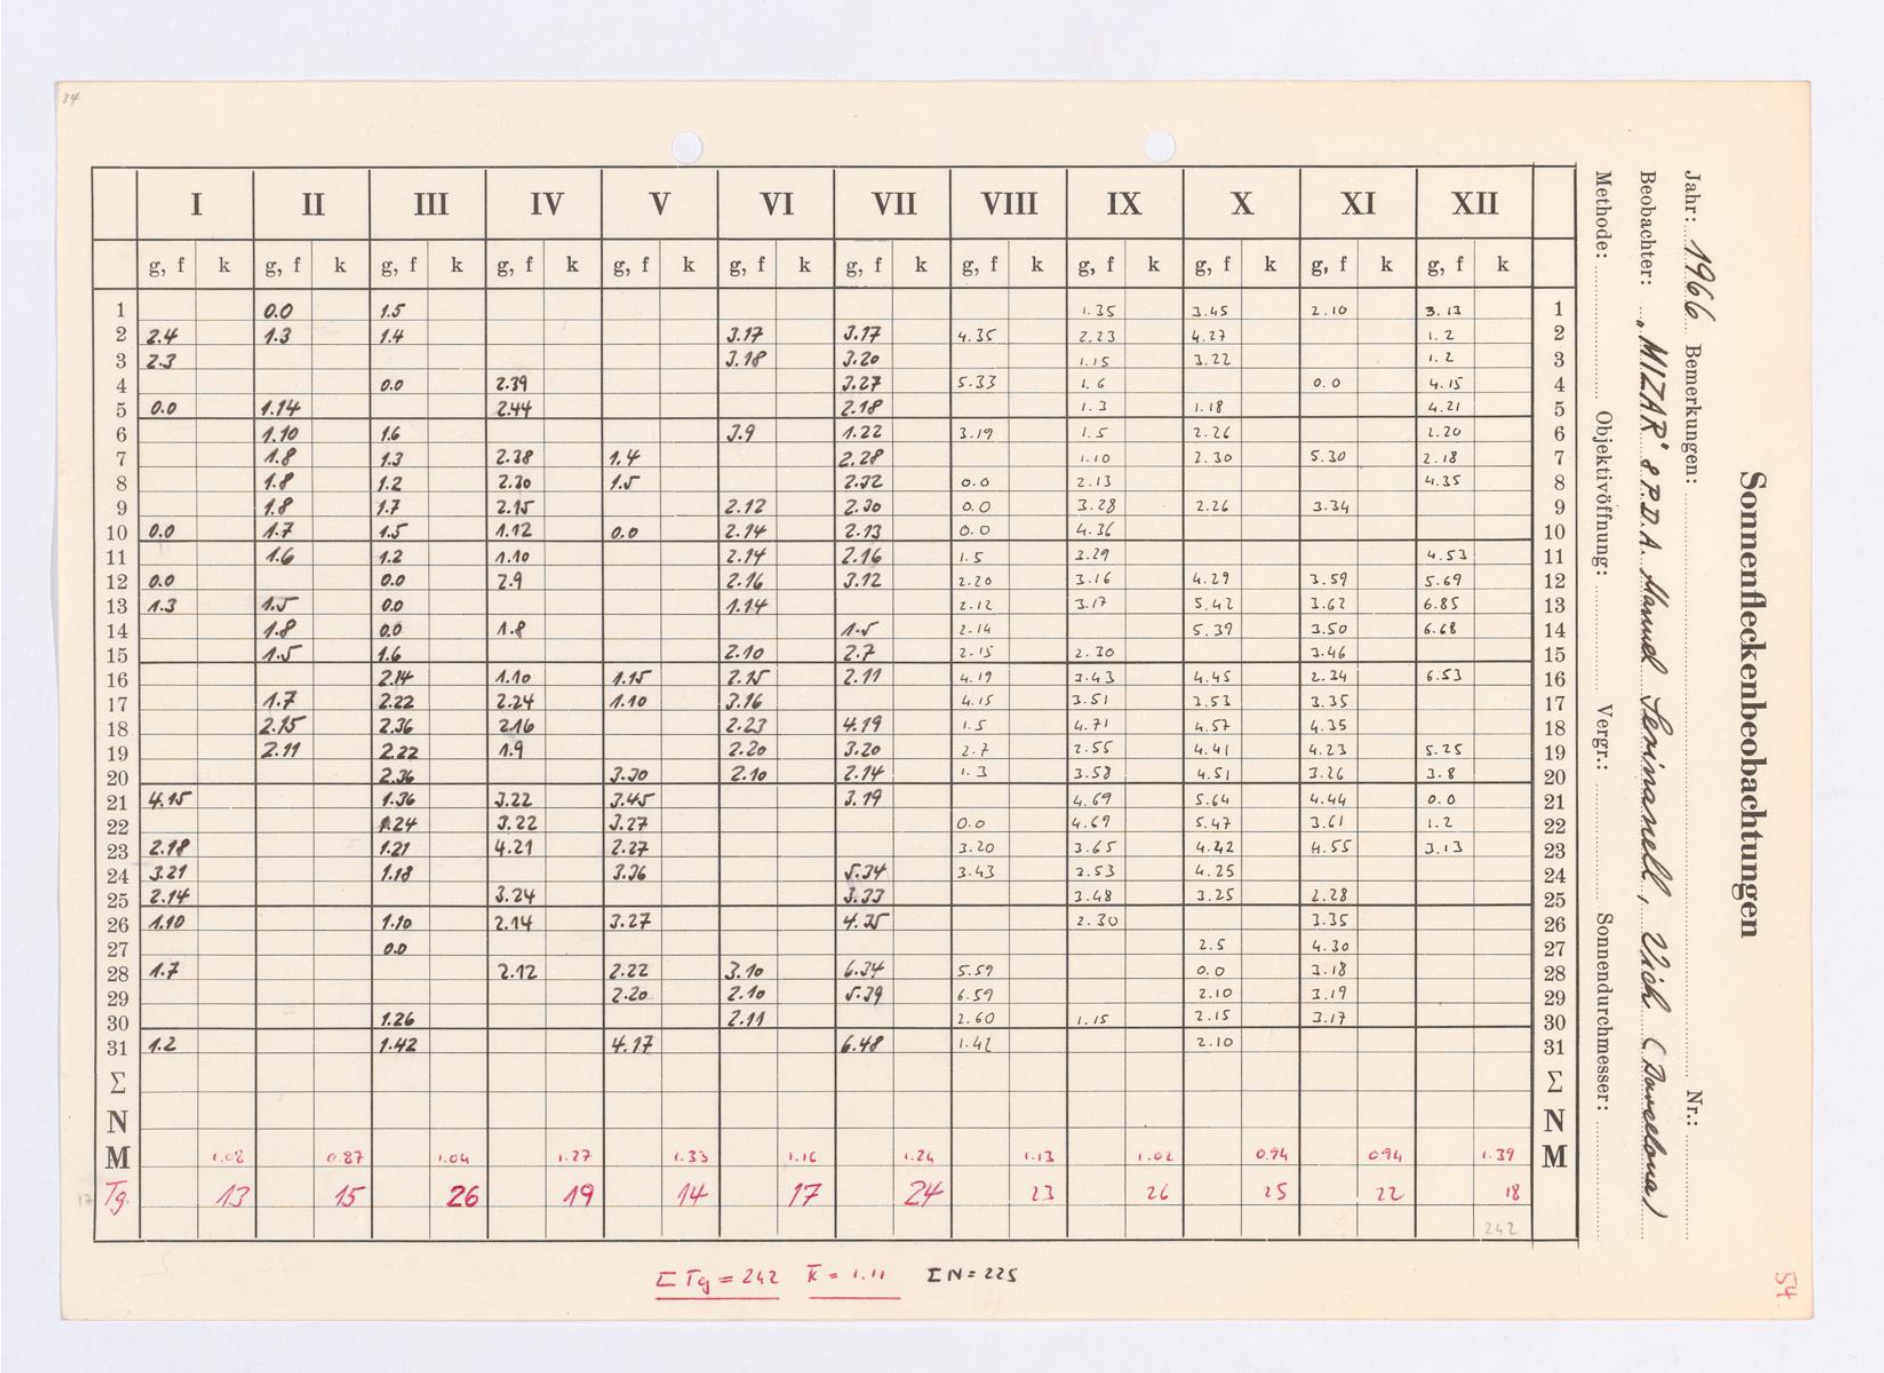 34
Sonnenfleckenbeobachtungen
Jahr: 1966 Bemerkungen: Nr.:
Beobachter: "MIZAR" & P.D.A. Manuel Serinanell, Vich (Barcelona)
Methode: Objektivöffnung: Vergr.: Sonnendurchmesser:
I II III IV V VI VII VIII IX X XI XII
g, f k g, f k g, f k g, f k g, f k g, f k g, f k g, f k g, f k g, f k g, f k g, f k
1 0.0 1.5 1.35 3.45 2.10 3.13 1
2 2.4 1.3 1.4 3.17 3.17 4.35 2.23 4.27 1.2 2
3 2.3 3.18 3.20 1.15 3.22 1.2 3
4 0.0 2.39 3.27 5.33 1.6 0.0 4.15 4
5 0.0 1.14 2.44 2.18 1.3 1.18 4.21 5
6 1.10 1.6 3.9 1.22 3.19 1.5 2.26 2.20 6
7 1.8 1.3 2.38 1.4 2.28 1.10 2.30 5.30 2.18 7
8 1.8 1.2 2.30 1.5 2.32 0.0 2.13 4.35 8
9 1.8 1.7 2.15 2.12 2.30 0.0 3.28 2.26 3.34 9
10 0.0 1.7 1.5 1.12 0.0 2.14 2.13 0.0 4.36 10
11 1.6 1.2 1.10 2.14 2.16 1.5 3.29 4.53 11
12 0.0 0.0 2.9 2.16 3.12 2.20 3.16 4.29 3.59 5.69 12
13 1.3 1.5 0.0 1.14 2.12 3.17 5.42 3.62 6.85 13
14 1.8 0.0 1.8 1.5 2.14 5.39 3.50 6.68 14
15 1.5 1.6 2.10 2.7 2.15 2.30 3.46 15
16 2.14 1.10 1.15 2.15 2.11 4.19 3.43 4.45 2.34 6.53 16
17 1.7 2.22 2.24 1.10 3.16 4.15 3.51 3.53 3.35 17
18 2.15 2.36 2.16 2.23 4.19 1.5 4.71 4.57 4.35 18
19 2.11 2.22 1.9 2.20 3.20 2.7 2.55 4.41 4.23 5.25 19
20 2.36 3.30 2.10 2.14 1.3 3.58 4.51 3.26 3.8 20
21 4.15 1.36 3.22 3.45 3.19 4.69 5.64 4.44 0.0 21
22 1.24 3.22 3.27 0.0 4.69 5.47 3.61 1.2 22
23 2.18 1.21 4.21 2.27 3.20 3.65 4.42 4.55 3.13 23
24 3.21 1.18 3.36 5.34 3.43 3.53 4.25 24
25 2.14 3.24 3.33 3.48 3.25 2.28 25
26 1.10 1.10 2.14 3.27 4.35 2.30 3.35 26
27 0.0 2.5 4.30 27
28 1.7 2.12 2.22 3.10 6.34 5.59 0.0 3.18 28
29 2.20 2.10 5.39 6.59 2.10 3.19 29
30 1.26 2.11 2.60 1.15 2.15 3.17 30
31 1.2 1.42 4.17 6.48 1.42 2.10 31
Σ Σ
N N
M 1.02 0.87 1.04 1.27 1.33 1.16 1.24 1.13 1.02 0.94 0.94 1.39 M
Tg. 13 15 26 19 14 17 24 23 26 25 22 18
242
Σ Tg = 242 k̅ = 1.11 Σ N = 225
54